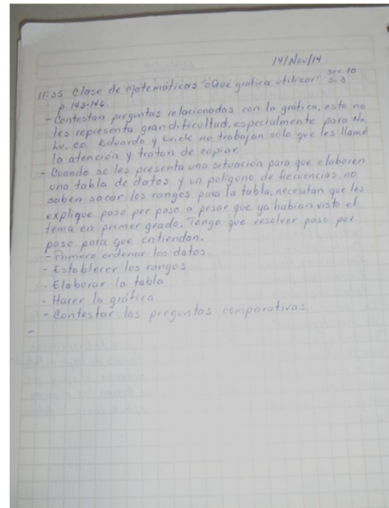 14/Nov/14
11:35 Clase de matemáticas "Que gráfica utilizar" Sec. 10
p. 142-146.
- Contestan preguntas relacionadas con la gráfica, esto no
les representa gran dificultad, especialmente para
Eduardo y Erick no trabajan sólo que les llamé
la atención y tratan de copiar.
- Cuando se les presenta una situación para que elaboren
una tabla de datos y un polígono de frecuencias, no
saben sacar los rangos para la tabla, necesitan que les
explique paso por paso a pesar que ya habian visto el
tema en primer grado. Tengo que resolver paso por
paso para que entiendan.
- Primero ordenar los datos
- Establecer los rangos
- Elaborar la tabla
- Hacer la gráfica
- Contestar las preguntas comparativas
-